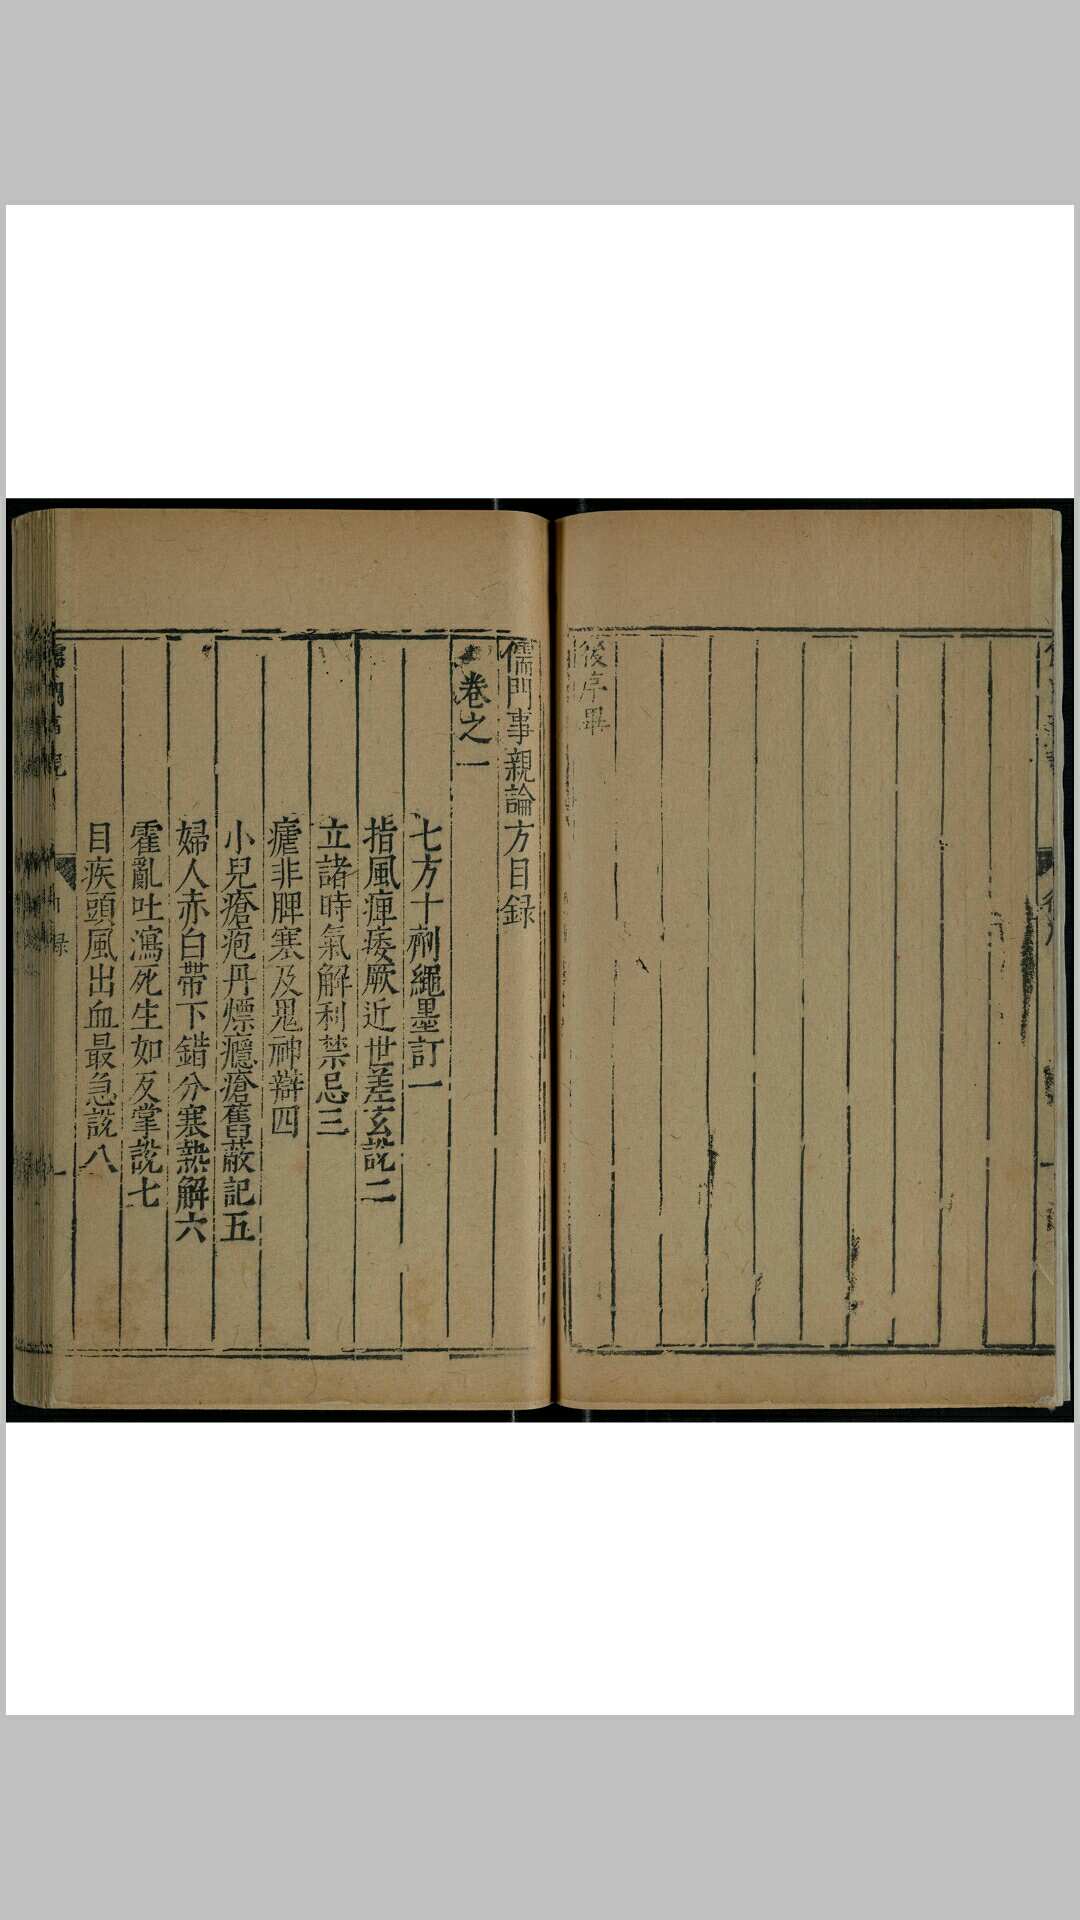 後序畢
儒門事親論方目録
卷之一
七方十劑繩墨訂一
指風痺痿厥近世差玄説二
立諸時氣解利禁忌三
瘧非脾寒及鬼神辯四
小兒瘡疱丹熛癮瘡舊蔽記五
婦人赤白帶下錯分寒熱解六
霍亂吐瀉死生如反掌説七
目疾頭風出血最急説八